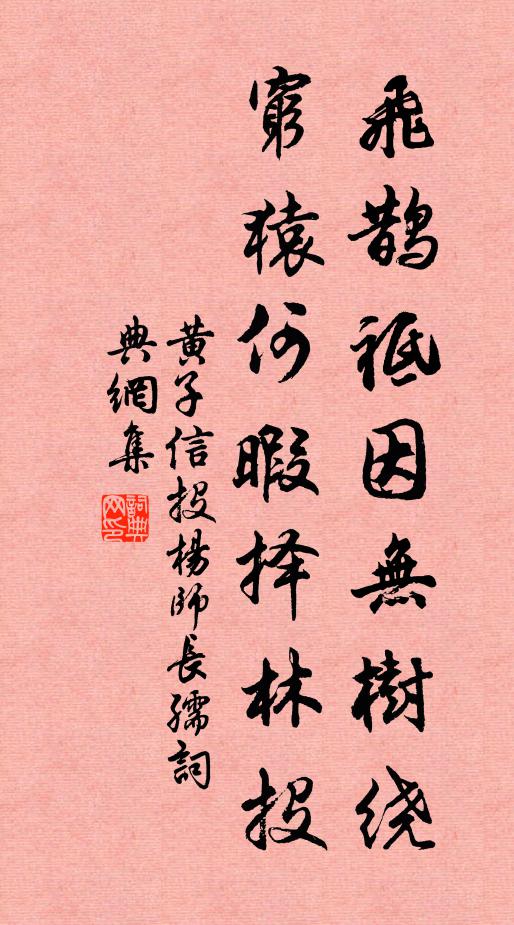 飛鵲祗因無樹绕
窮猿何暇择林投
黄子信投楊師長孺詞
典網集
詞典网印